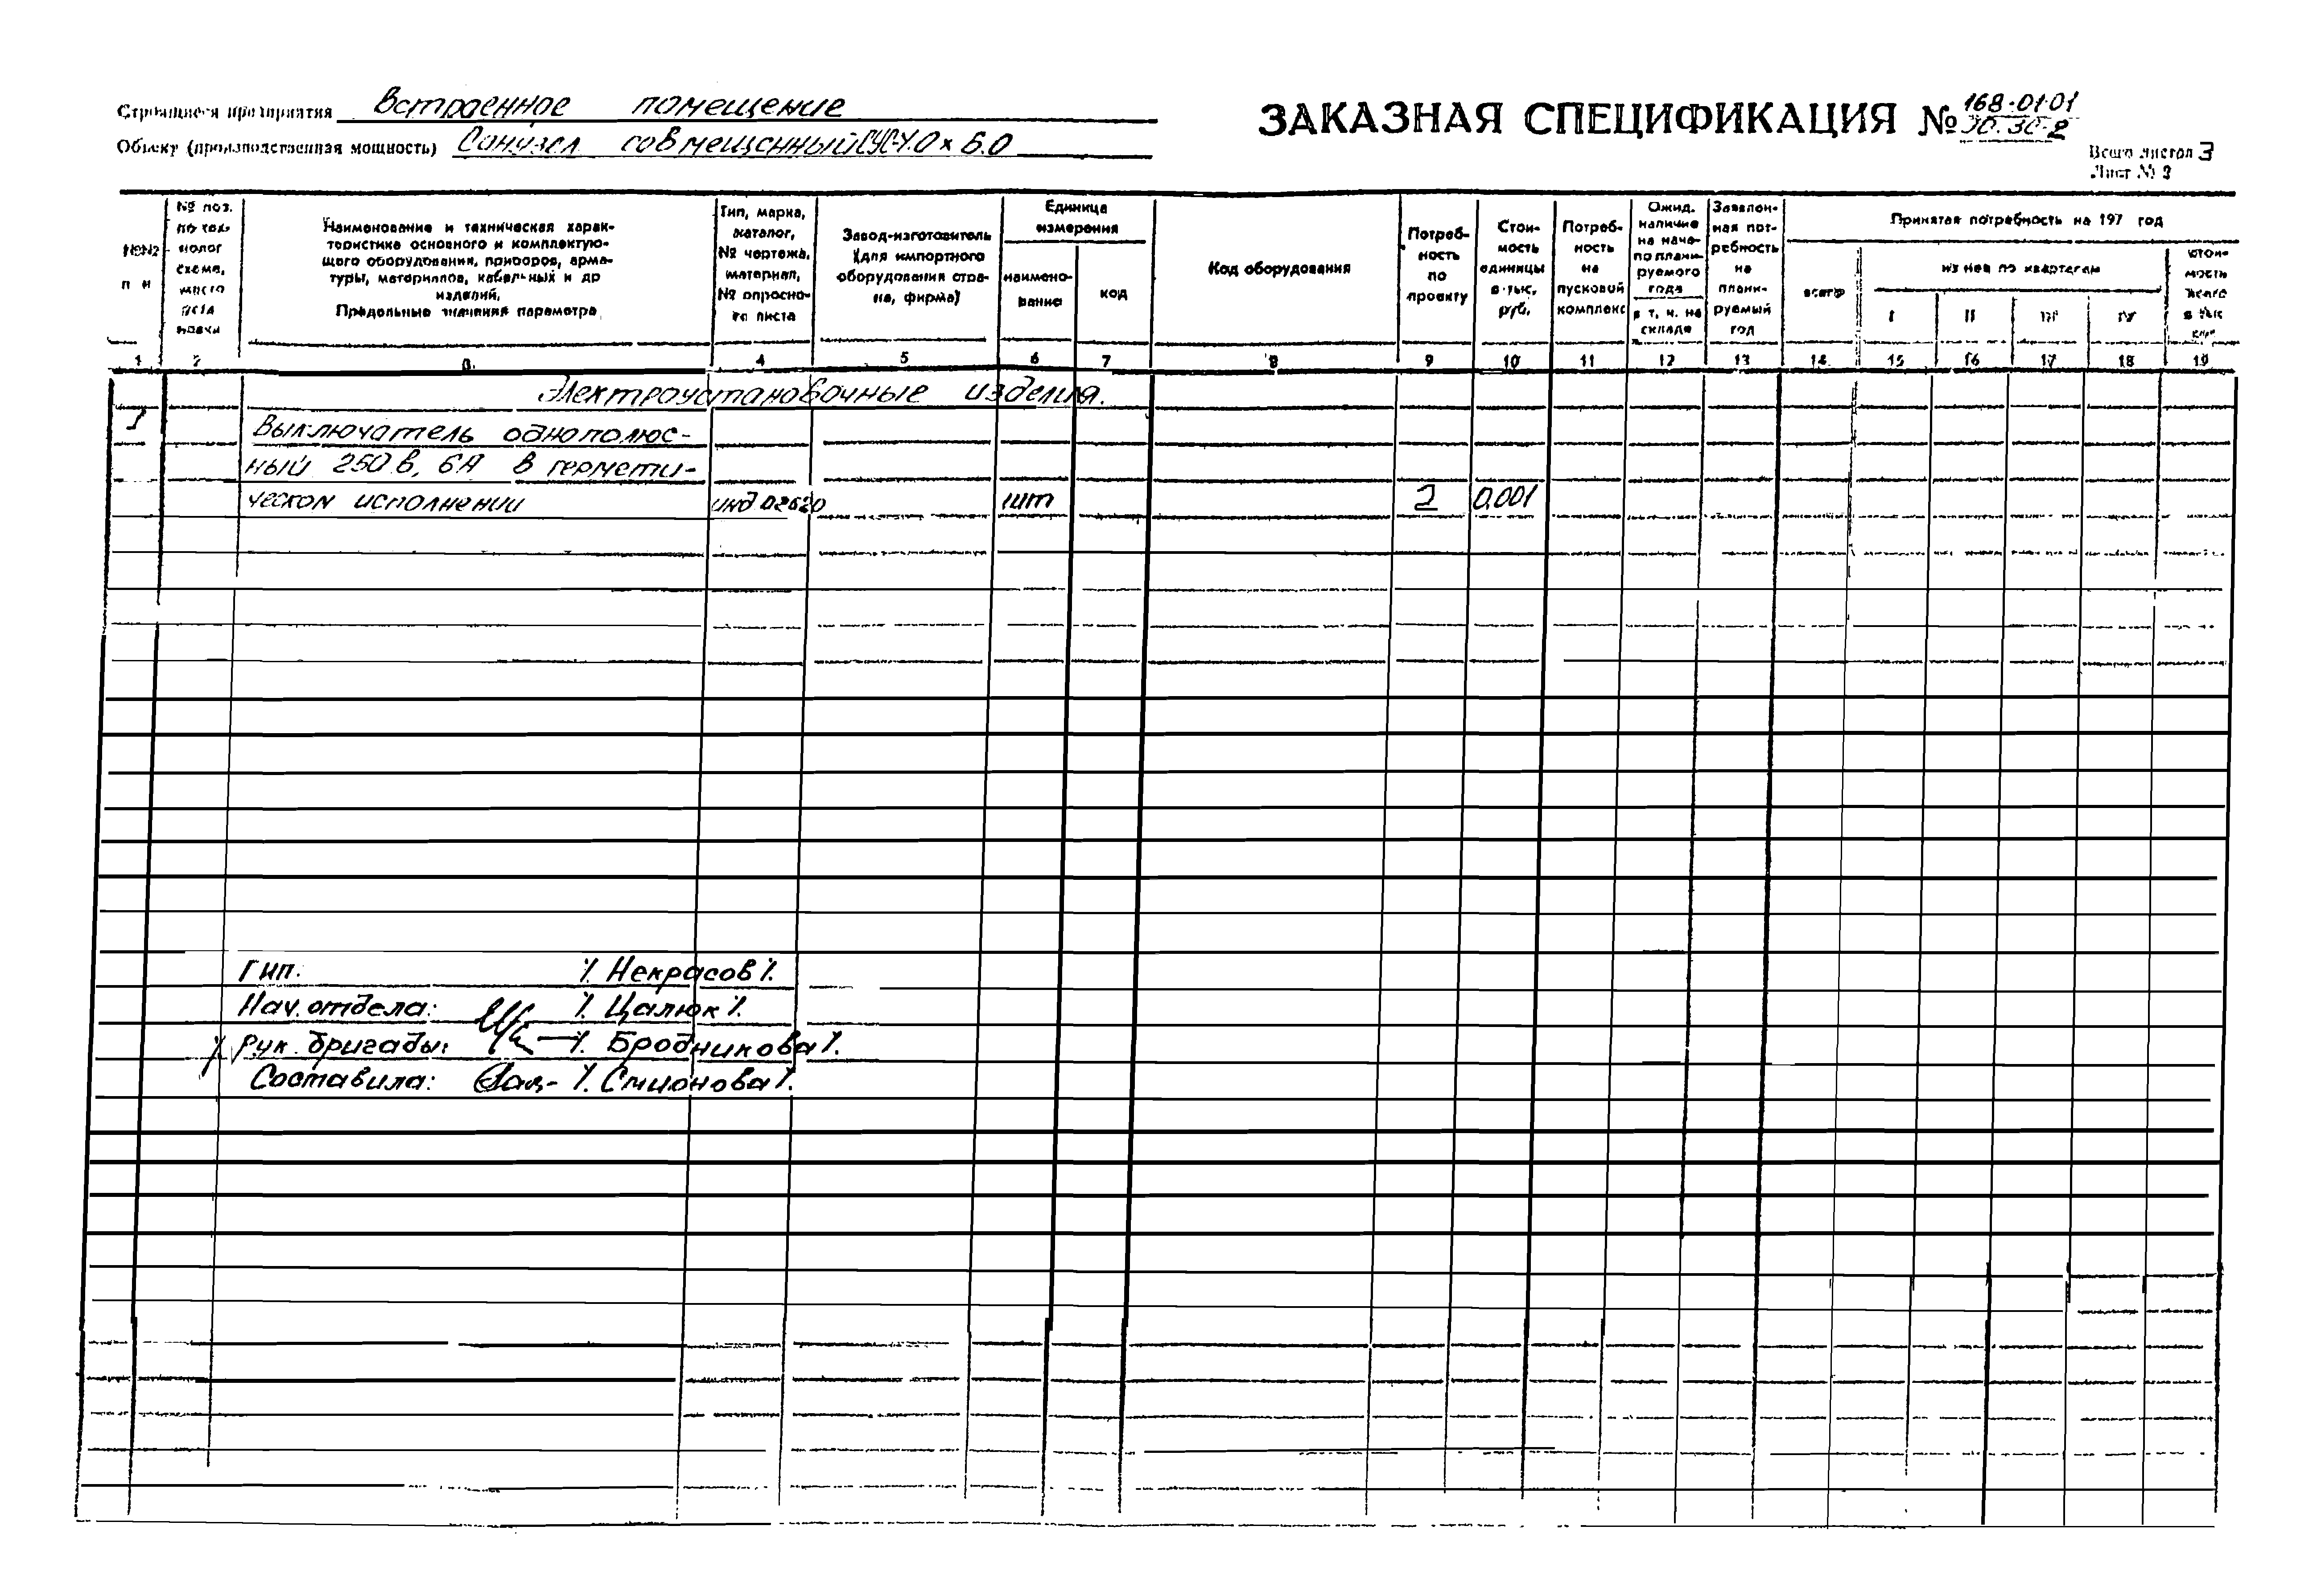 Строящиеся предприятия Встроенное помещение
ЗАКАЗНАЯ СПЕЦИФИКАЦИЯ № 168-01-01
Объект (производственная мощность) Санузел совмещенный
Всего листов 3
Лист № 3
№№ п п
№ поз. по тех- нолог схеме, место уста новки
Наименование и техническая харак-
теристика основного и комплектую-
щего оборудования, приборов, арма-
туры, материалов, кабельных и др
изделий.
Предельные значения параметра
Тип, марка,
каталог,
№ чертежа,
материал,
№ опросно-
го листа
Завод-изготовитель
(для импортного
оборудования стра-
на, фирма)
Единица
измерения
наимено-
вание
код
Код оборудования
Потреб-
ность
по
проекту
Стои-
мость
единицы
в тыс.
руб.
Потреб-
ность
на
пусковой
комплекс
Ожид.
наличие
на нача-
ло плани-
руемого
года
в т. ч. на
складе
Заявлен-
ная пот-
ребность
на
плани-
руемый
год
Принятая потребность на 197 год
всего
из нее по кварталам
I II III IV
стои-
мость
всего
в тыс
руб
1 2 3 4 5 6 7 8 9 10 11 12 13 14 15 16 17 18 19
Электроустановочные изделия.
1 Выключатель однополюс-
ный 250в, 6А в гермети-
ческом исполнении инд 02620 шт 2 0,001
ГИП: /Некрасов/.
Нач. отдела: /Цалюк/.
Рук. бригады: /Бродникова/.
Составила: /Смионова/.